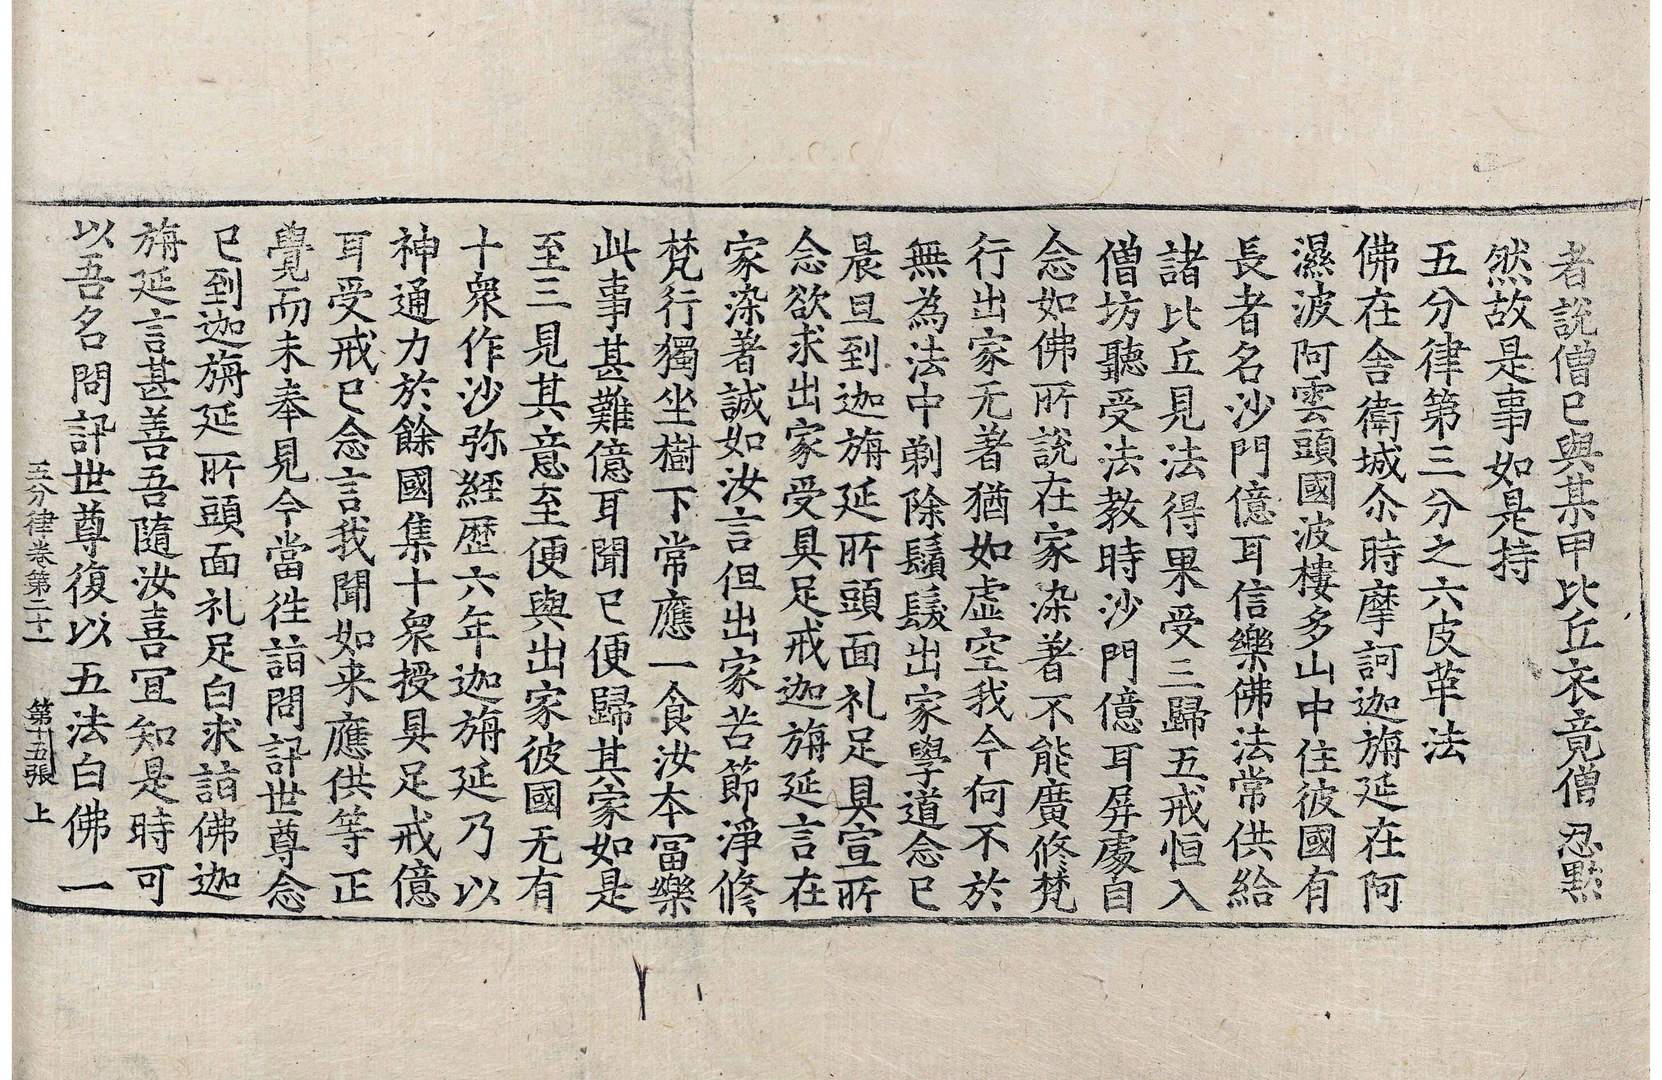 者說僧已與某甲比丘衣竟僧忍默
然故是事如是持
五分律第三分之六皮革法
佛在舍衛城尒時摩訶迦旃延在阿
濕波阿雲頭國波樓多山中住彼國有
長者名沙門億耳信樂佛法常供給
諸比丘見法得果受三歸五戒恒入
僧坊聽受法教時沙門億耳屏處自
念如佛所說在家染著不能廣修梵
行出家无著猶如虛空我今何不於
無為法中剃除鬚髮出家學道念已
晨旦到迦旃延所頭面礼足具宣所
念欲求出家受具足戒迦旃延言在
家染著誠如汝言但出家苦節淨修
梵行獨坐樹下常應一食汝本富樂
此事甚難億耳聞已便歸其家如是
至三見其意至便與出家彼國无有
十衆作沙弥經歷六年迦旃延乃以
神通力於餘國集十衆授具足戒億
耳受戒已念言我聞如来應供等正
覺而未奉見今當往詣問訊世尊念
已到迦旃延所頭面礼足白求詣佛迦
旃延言甚善吾隨汝喜冝知是時可
以吾名問訊世尊復以五法白佛一
五分律卷第二十一 第十五張 上